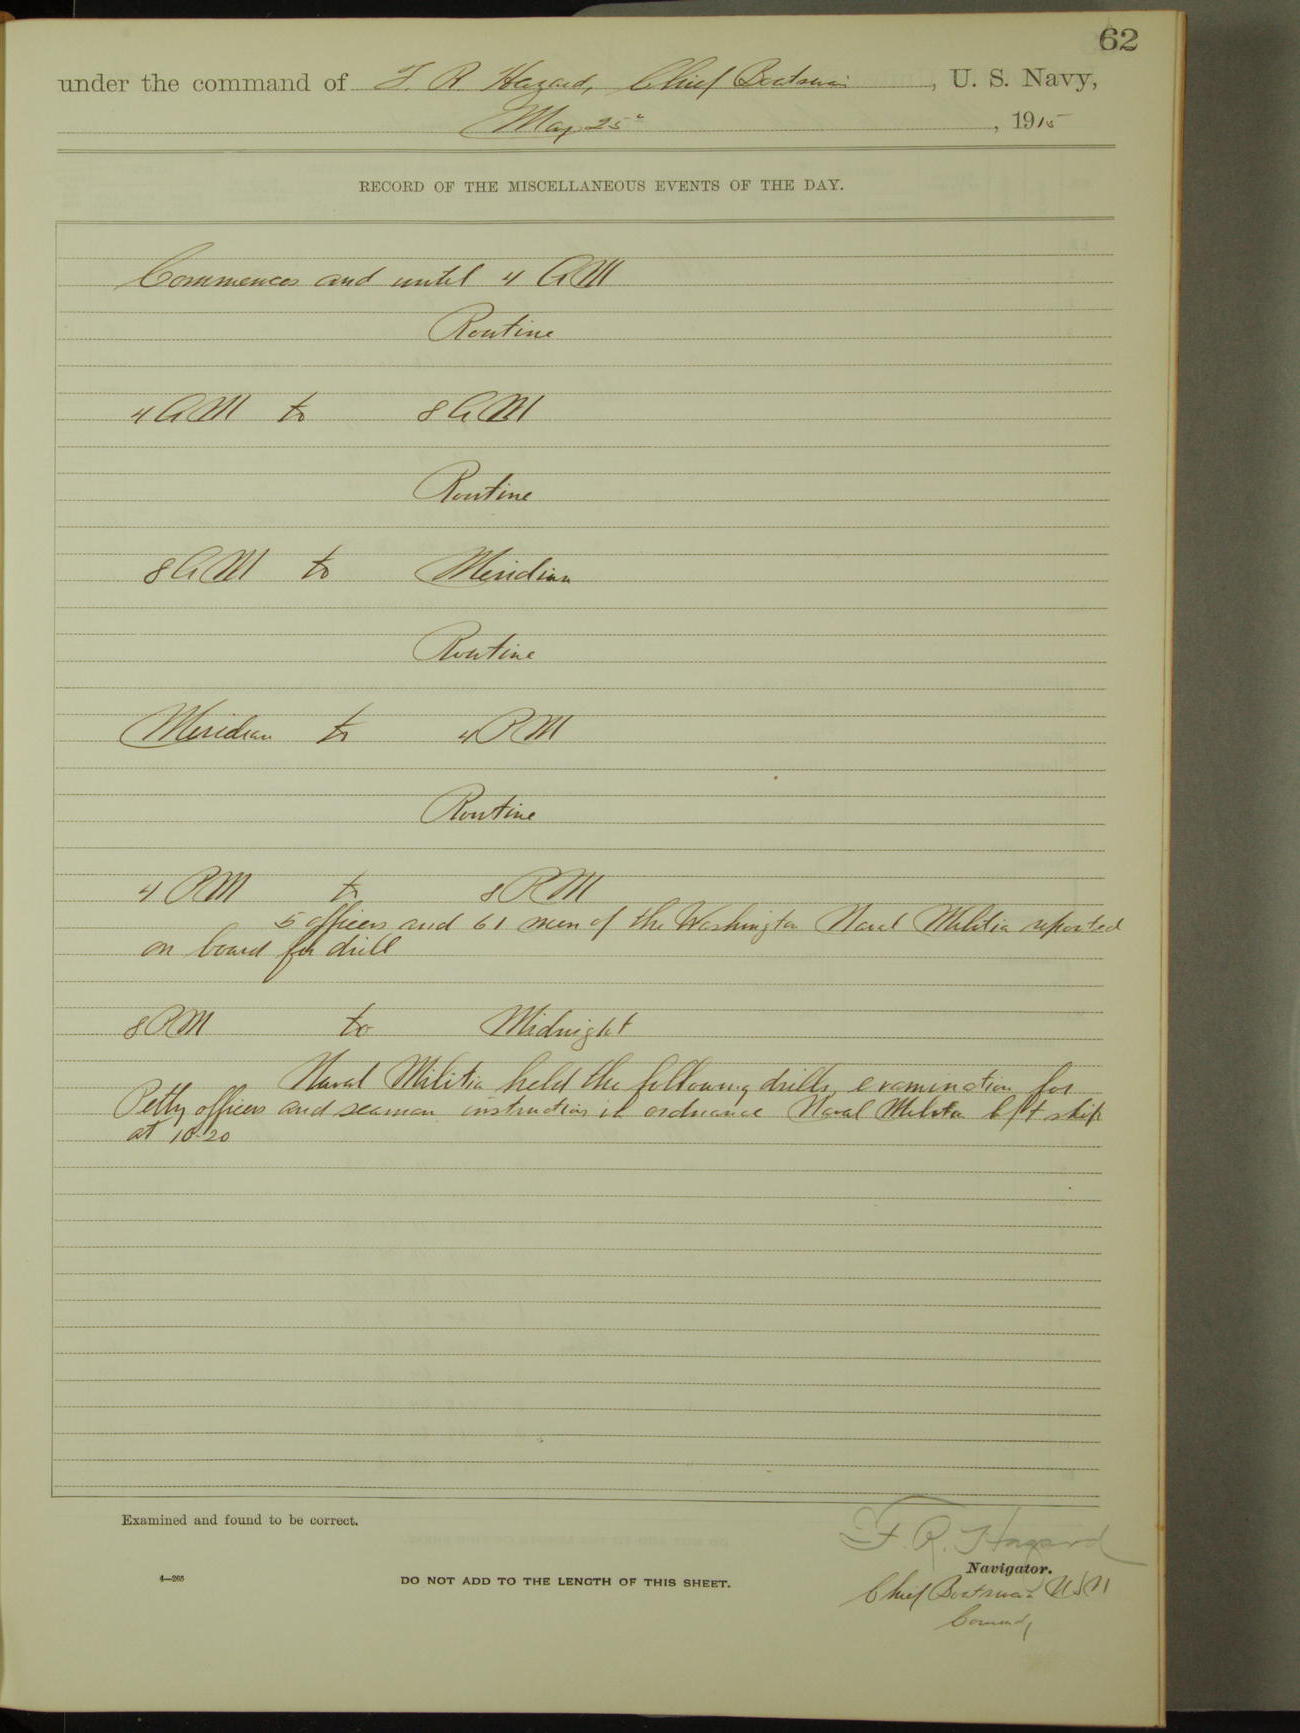 62
under the command of F. R. Hazard, Chief Boatswain, U. S. Navy,
May 25", 1915
RECORD OF THE MISCELLANEOUS EVENTS OF THE DAY.
Commences and until 4 AM
Routine
4 AM to 8 AM
Routine
8 AM to Meridian
Routine
Meridian to 4 PM
Routine
4 PM to 8 PM
5 officers and 61 men of the Washington Naval Militia reported
on board for drill
8 PM to Midnight
Naval Militia held the following drills, examination for
Petty officers and seaman instruction in ordnance Naval Militia left ship
at 10-20
Examined and found to be correct.
F. R. Hazard
Navigator.
4—265
DO NOT ADD TO THE LENGTH OF THIS SHEET.
Chief Boatswain USN
Comdg